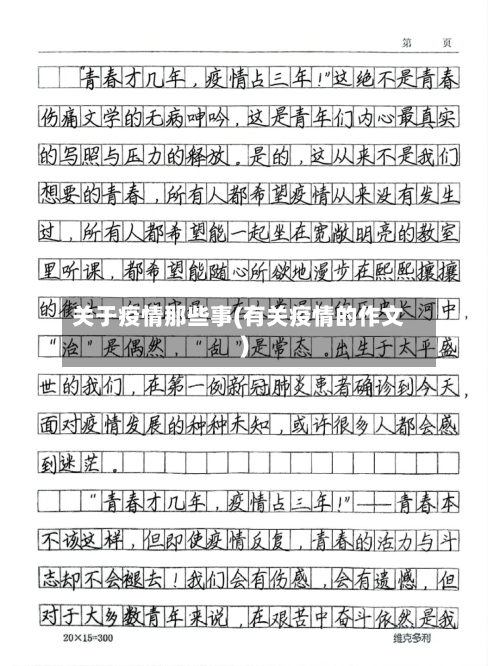 第 页
“青春才几年，疫情占三年！”这绝不是青春
伤痛文学的无病呻吟，这是青年们内心最真实
的写照与压力的释放。是的，这从来不是我们
想要的青春，所有人都希望疫情从来没有发生
过，所有人都希望能一起坐在宽敞明亮的教室
里听课，都希望能随心所欲地漫步在熙熙攘攘
的街 长河中，
关于疫情那些事(有关疫情的作文
)
“治”是偶然，“乱”是常态。出生于太平盛
世的我们，在第一例新冠肺炎患者确诊到今天，
面对疫情发展的种种未知，或许很多人都会感
到迷茫。
“青春才几年，疫情占三年！”——青春本
不该这样，但即使疫情反复，青春的活力与斗
志却不会褪去！我们会有伤感，会有遗憾，但
对于大多数青年来说，在艰苦中奋斗依然是我
20×15=300 维克多利